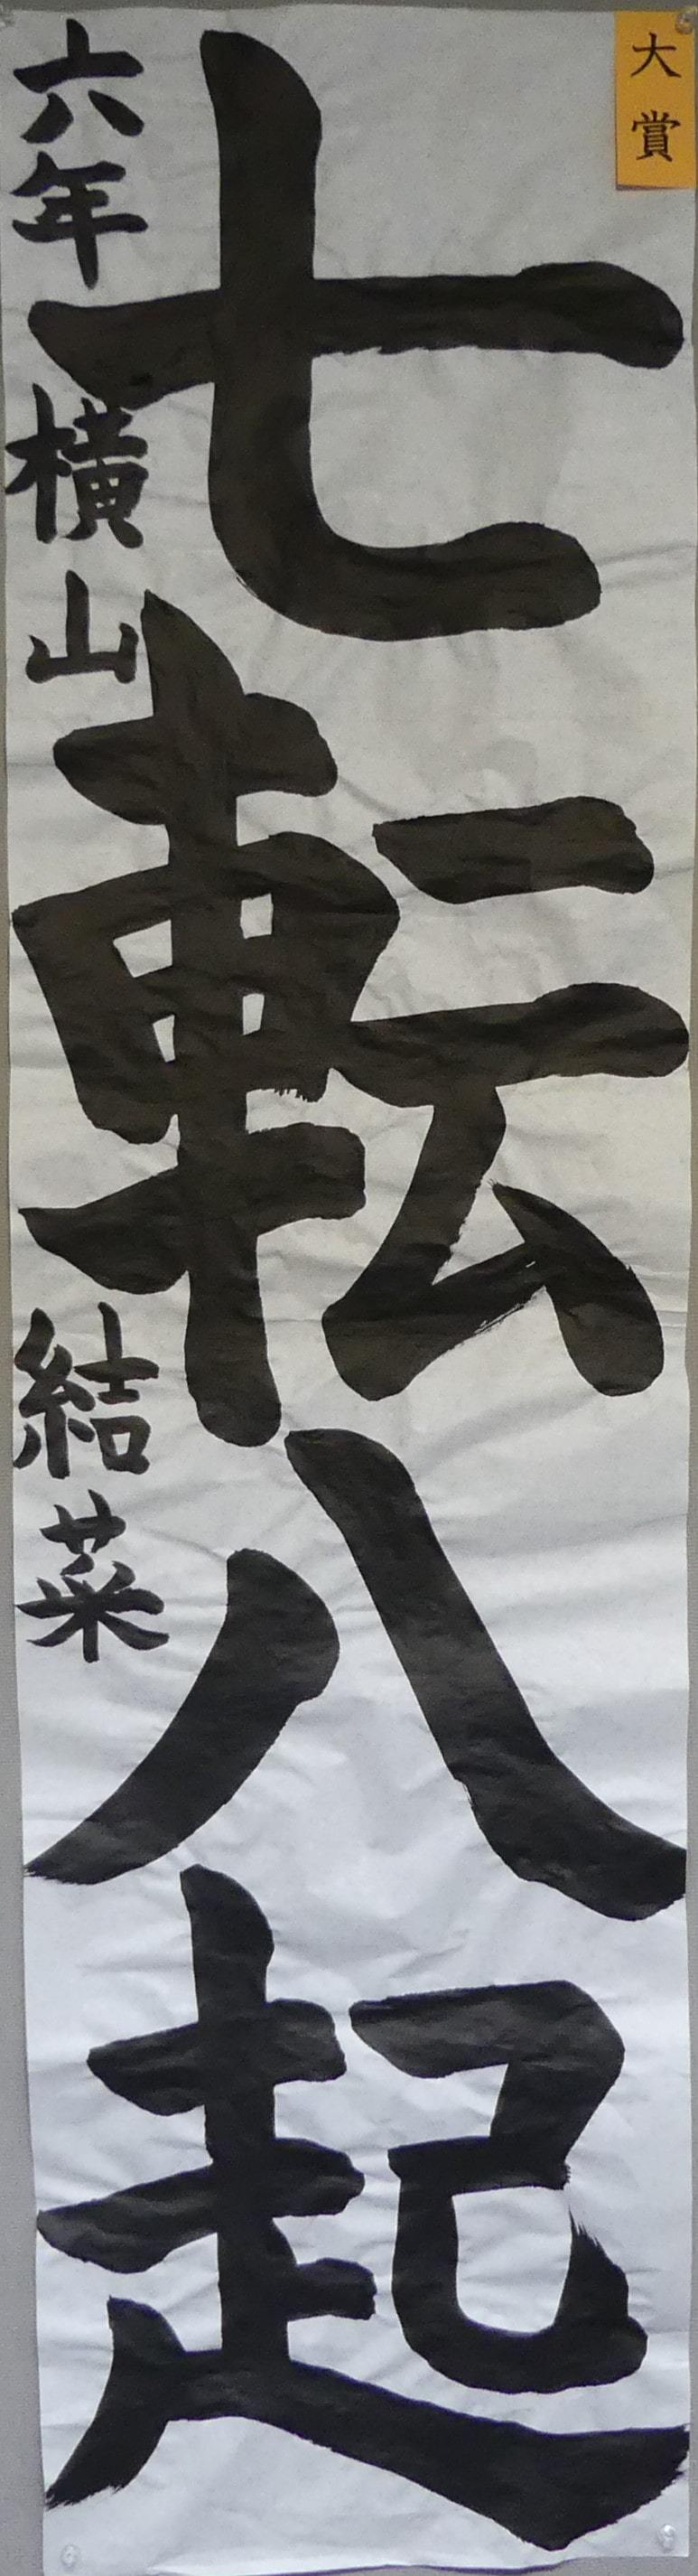 大賞
七転八起
六年 横山 結菜